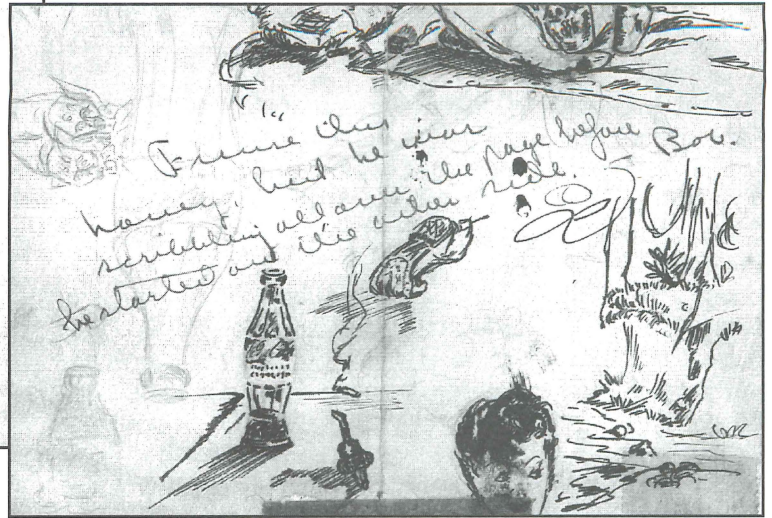 Excuse this
honey, but he was
scribbling all over the page before Bob.
he started on the other side.